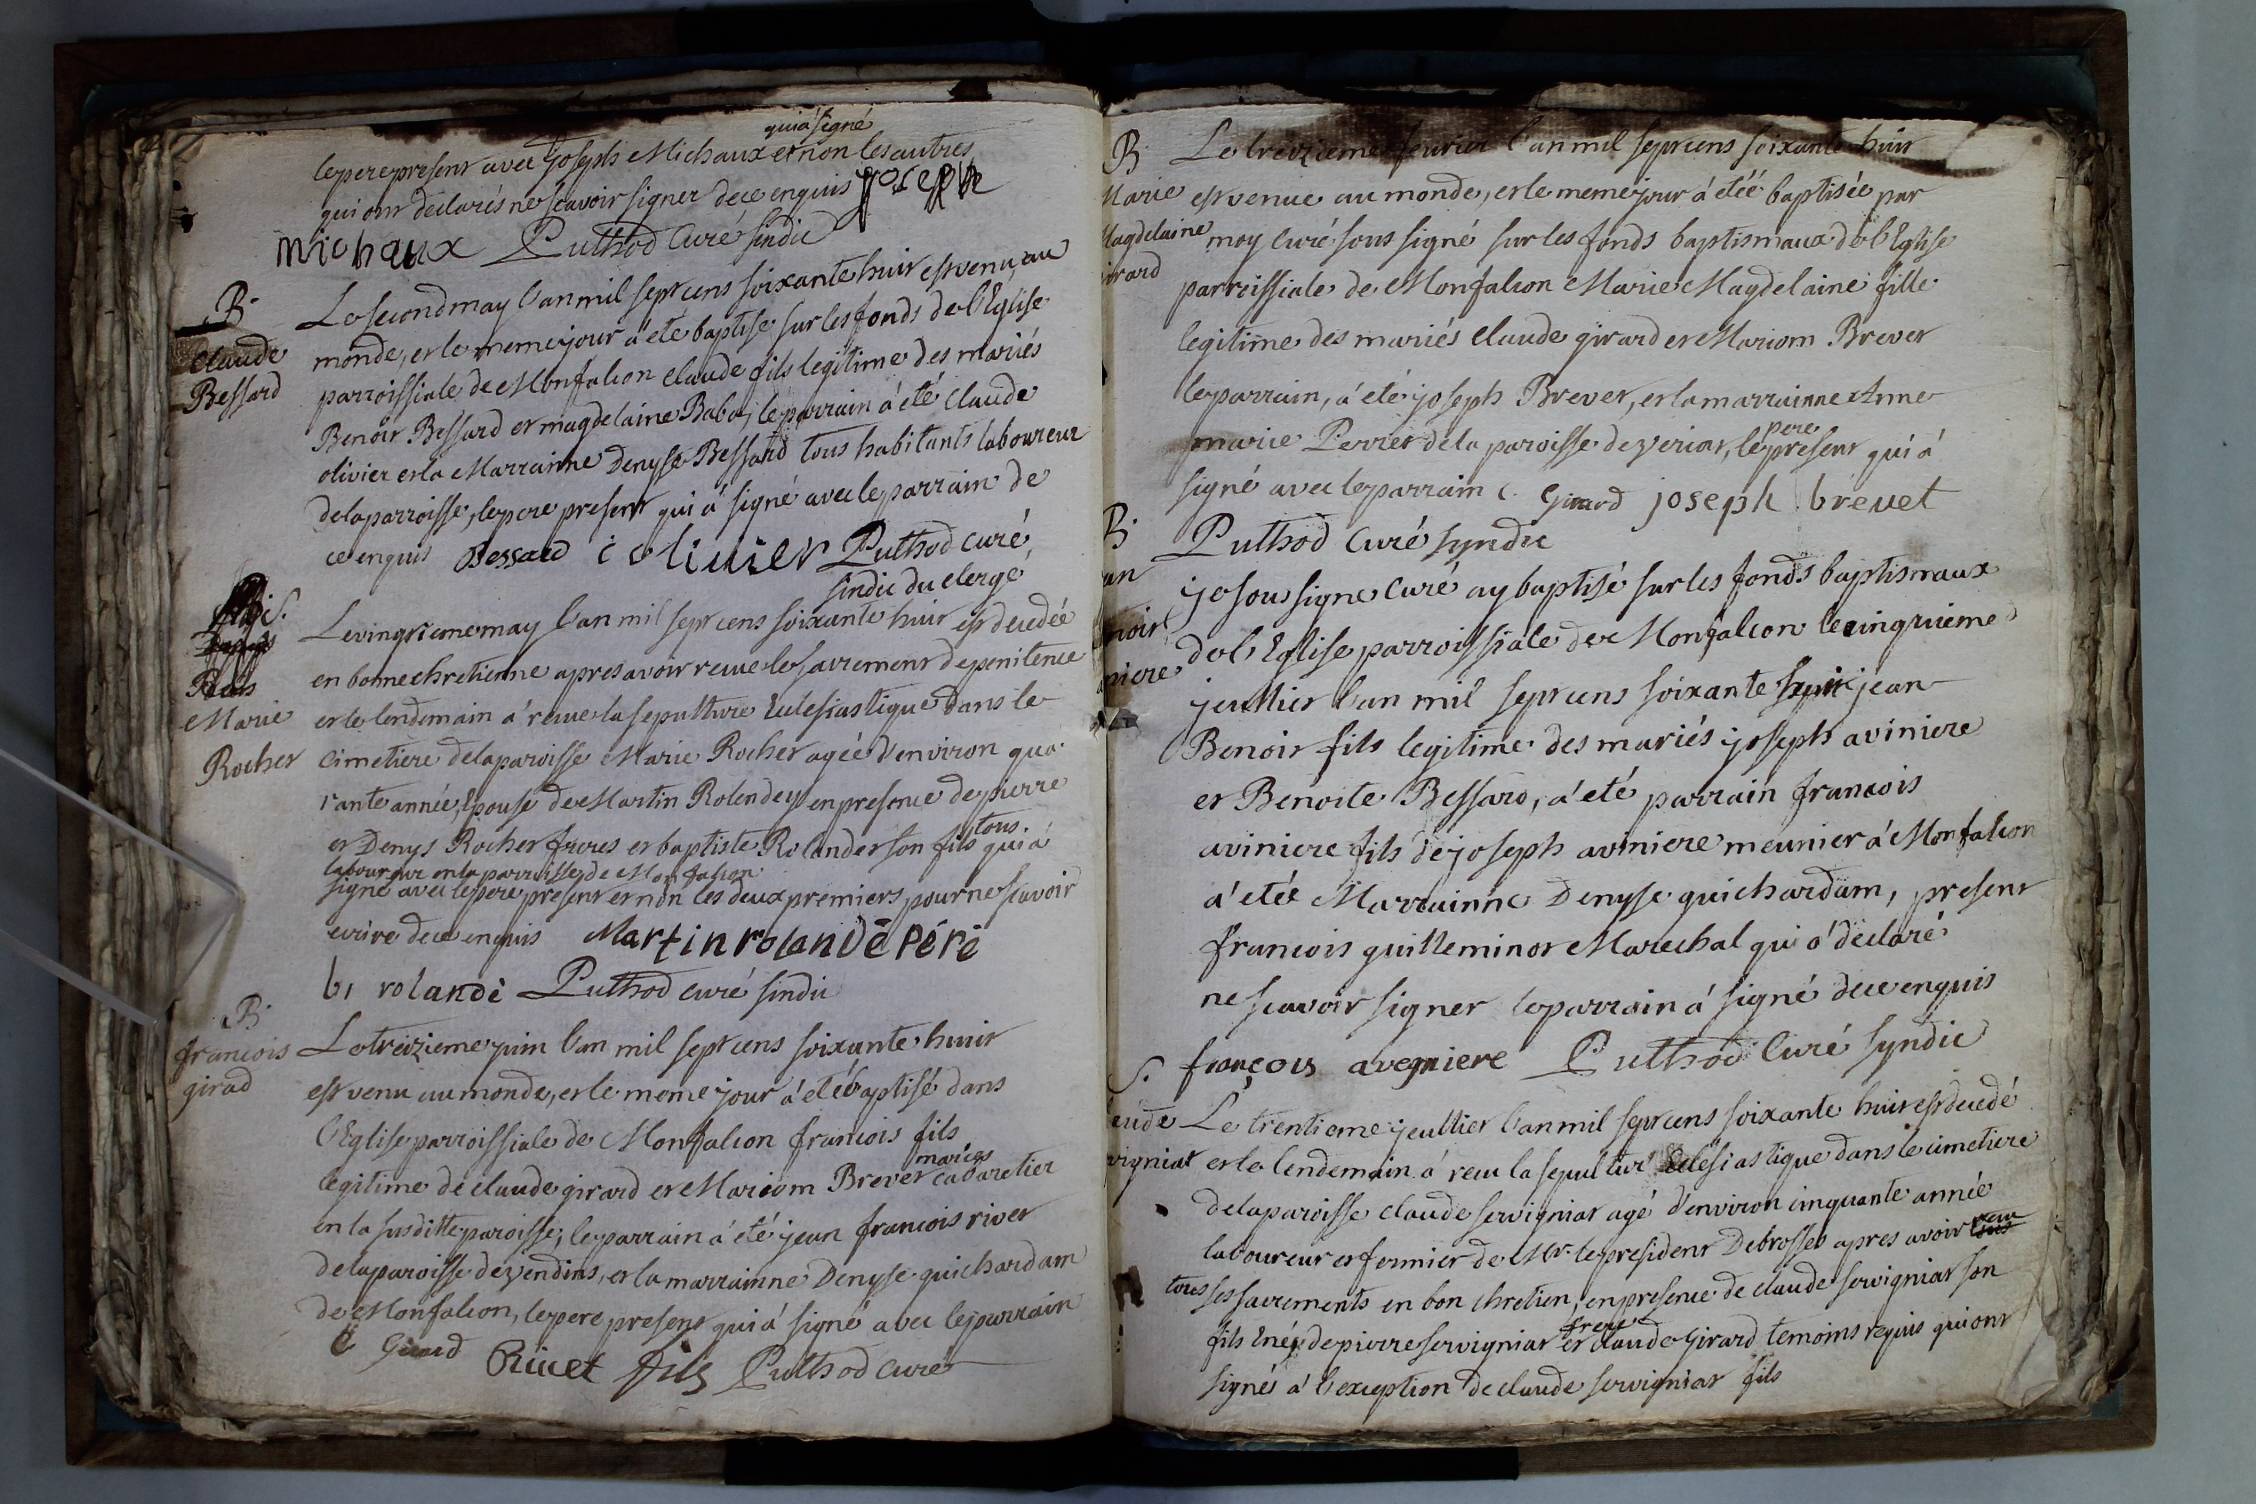 qui a signé
le pere present avec joseph Michaux et non les autres
qui ont declarés ne scavoir signer de ce enquis joseph
michaux Puthod Curé sindic
B.
Claude
Bessard
Le second may l'an mil sept cens soixante huit est venu au
monde, et le meme jour a eté baptise sur les fonds de l'Eglise
parroissiale de Monfalcon claude fils legitime des mariés
Benoit Bessard et magdelaine Baba, le parrain á été Claude
olivier et la Marrainne Denyse Bessard tous habitants laboureur
de la parroisse, le pere present qui á signé avec le parrain de
ce enquis Bessard c olivier Puthod curé,
sindic du clergé
S.
Marie
Rocher
Le vingtieme may l'an mil sept cens soixante huit est decedée
en bonne chretienne apres avoir recue le sacrement de penitence
et le lendemain a' recue la sepulture Eclesiastique dans le
Cimetiere de la paroisse Marie Rocher agée d'environ qua
rante année, Epouse de Martin Rolendey en presence de pierre
et Denys Rocher freres et baptiste Rolandet son fils tous qui á
laboureur en la parroisse de Monfalcon
signé avec le pere present et non les deux premiers pour ne scavoir
ecrire de ce enquis Martin rolandé péré
b, rolandé Puthod curé sindic
B.
francois
girad
Le treizieme juin l'an mil sept cens soixante huit
est venu au monde, et le meme jour á eté baptisé dans
l'Eglise parroissiale de Monfalcon francois fils
legitime de claude girard et Mariom Brevet mariés cabaretier
en la susditte paroisse; le parrain á été jean francois rivet
de la paroisse de vendins, et la marrainne Denyse guichardam
de Monfalcon, le pere present qui á signé avec le parrain
C Girard Rivet fils Puthod curé
B
Marie
Magdelaine
irard
Le treizieme fevrier l'an mil sept cens soixante huit
est venue au monde, et le meme jour á etéé baptisée par
moy Curé sous signé sur les fonds baptismaux de l'Eglise
parroissiale de Monfalcon Marie Magdelaine fille
legitime des mariés Claude girard et Mariom Brevet
le parrain, á été joseph Brevet, et la marrainne Anne
marie Perrier de la paroisse de veriat, le pere present qui á
signé avec le parrain C. Girard joseph brevet
Puthod Curé syndic
B.
an
noit
niere
je sous signe Curé ay baptisé sur les fonds baptismaux
de l'Eglise parroissiale de Monfalcon le cinquieme
jeullier l'an mil sept cens soixante huit jean
Benoit fils legitime des mariés joseph aviniere
et Benoite Bessard, a' eté parrain francois
aviniere fils de joseph aviniere meunier á Monfalcon
a' etée Marrainne Denyse guichardam, present
francois guilleminot Marechal qui a' declaré
ne scavoir signer le parrain á signé de ce enquis
françois avegniere Puthod Curé syndic
S.
aude
vigniat
Le trentieme jeullier l'an mil sept cens soixante huit est decedé
et le lendemain á recu la sepulture Eclesiastique dans le cimetiere
de la paroisse claude servigniat agé d'environ cinquante année
laboureur et fermier de Mr. le president Debrosses apres avoir recu
tous ses sacrements en bon chretien; en presence de claude servigniat son
fils Ené, de pierre servigniat frere et claude Girard temoins requis qui ont
signés á l'exception de claude servigniat fils